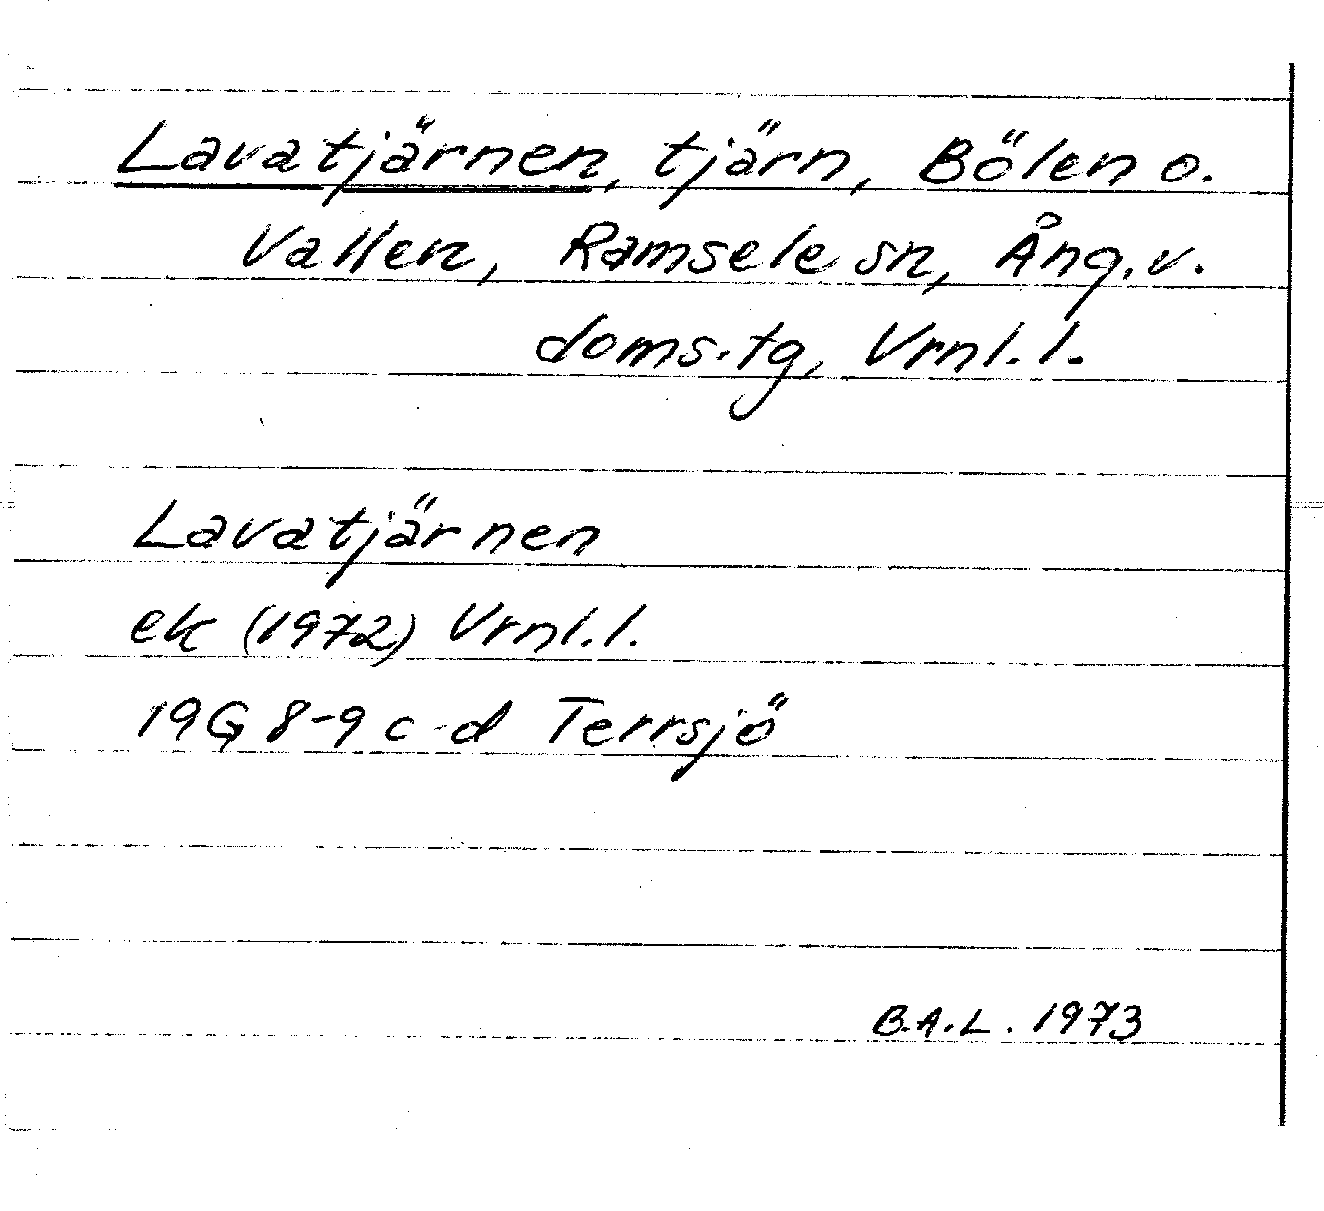 Lavatjärnen, tjärn, Bölen o.
Vallen, Ramsele sn, Ång. v.
doms.tg, Vrnl. l.
Lavatjärnen
ek (1972) Vrnl. l.
19G 8-9 c-d Terrsjö
B.A.L. 1973